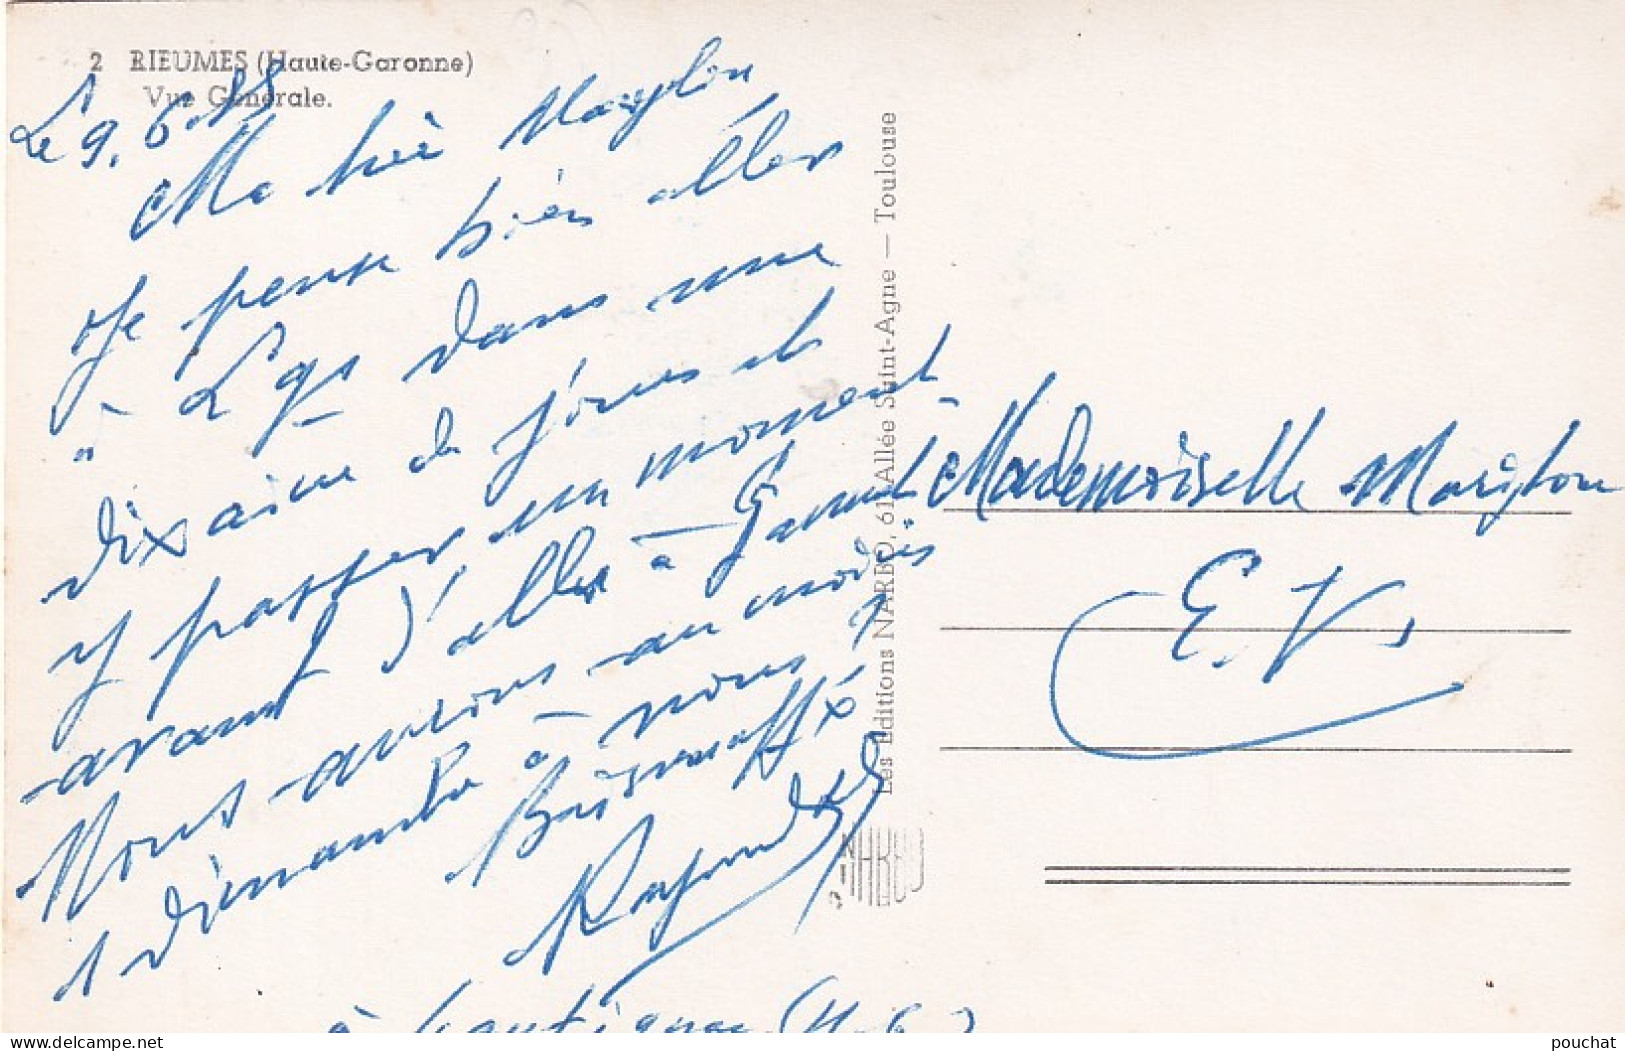 2 RIEUMES (Haute-Garonne)
Vue Générale.
Le 9.6.55
Ma chère Marylou
Je pense bien aller
à L'  dans une
dixaine de jours et
y passer un moment
avant d'aller à
Nous aurions au moins
1 dimanche à nous,
Bises
Raymond
à (H-G)
Les Editions NARBO, 61 Allée Saint-Agne — Toulouse
NARBO
Mademoiselle Marylou
E.V.
delcampe.net
pouchat